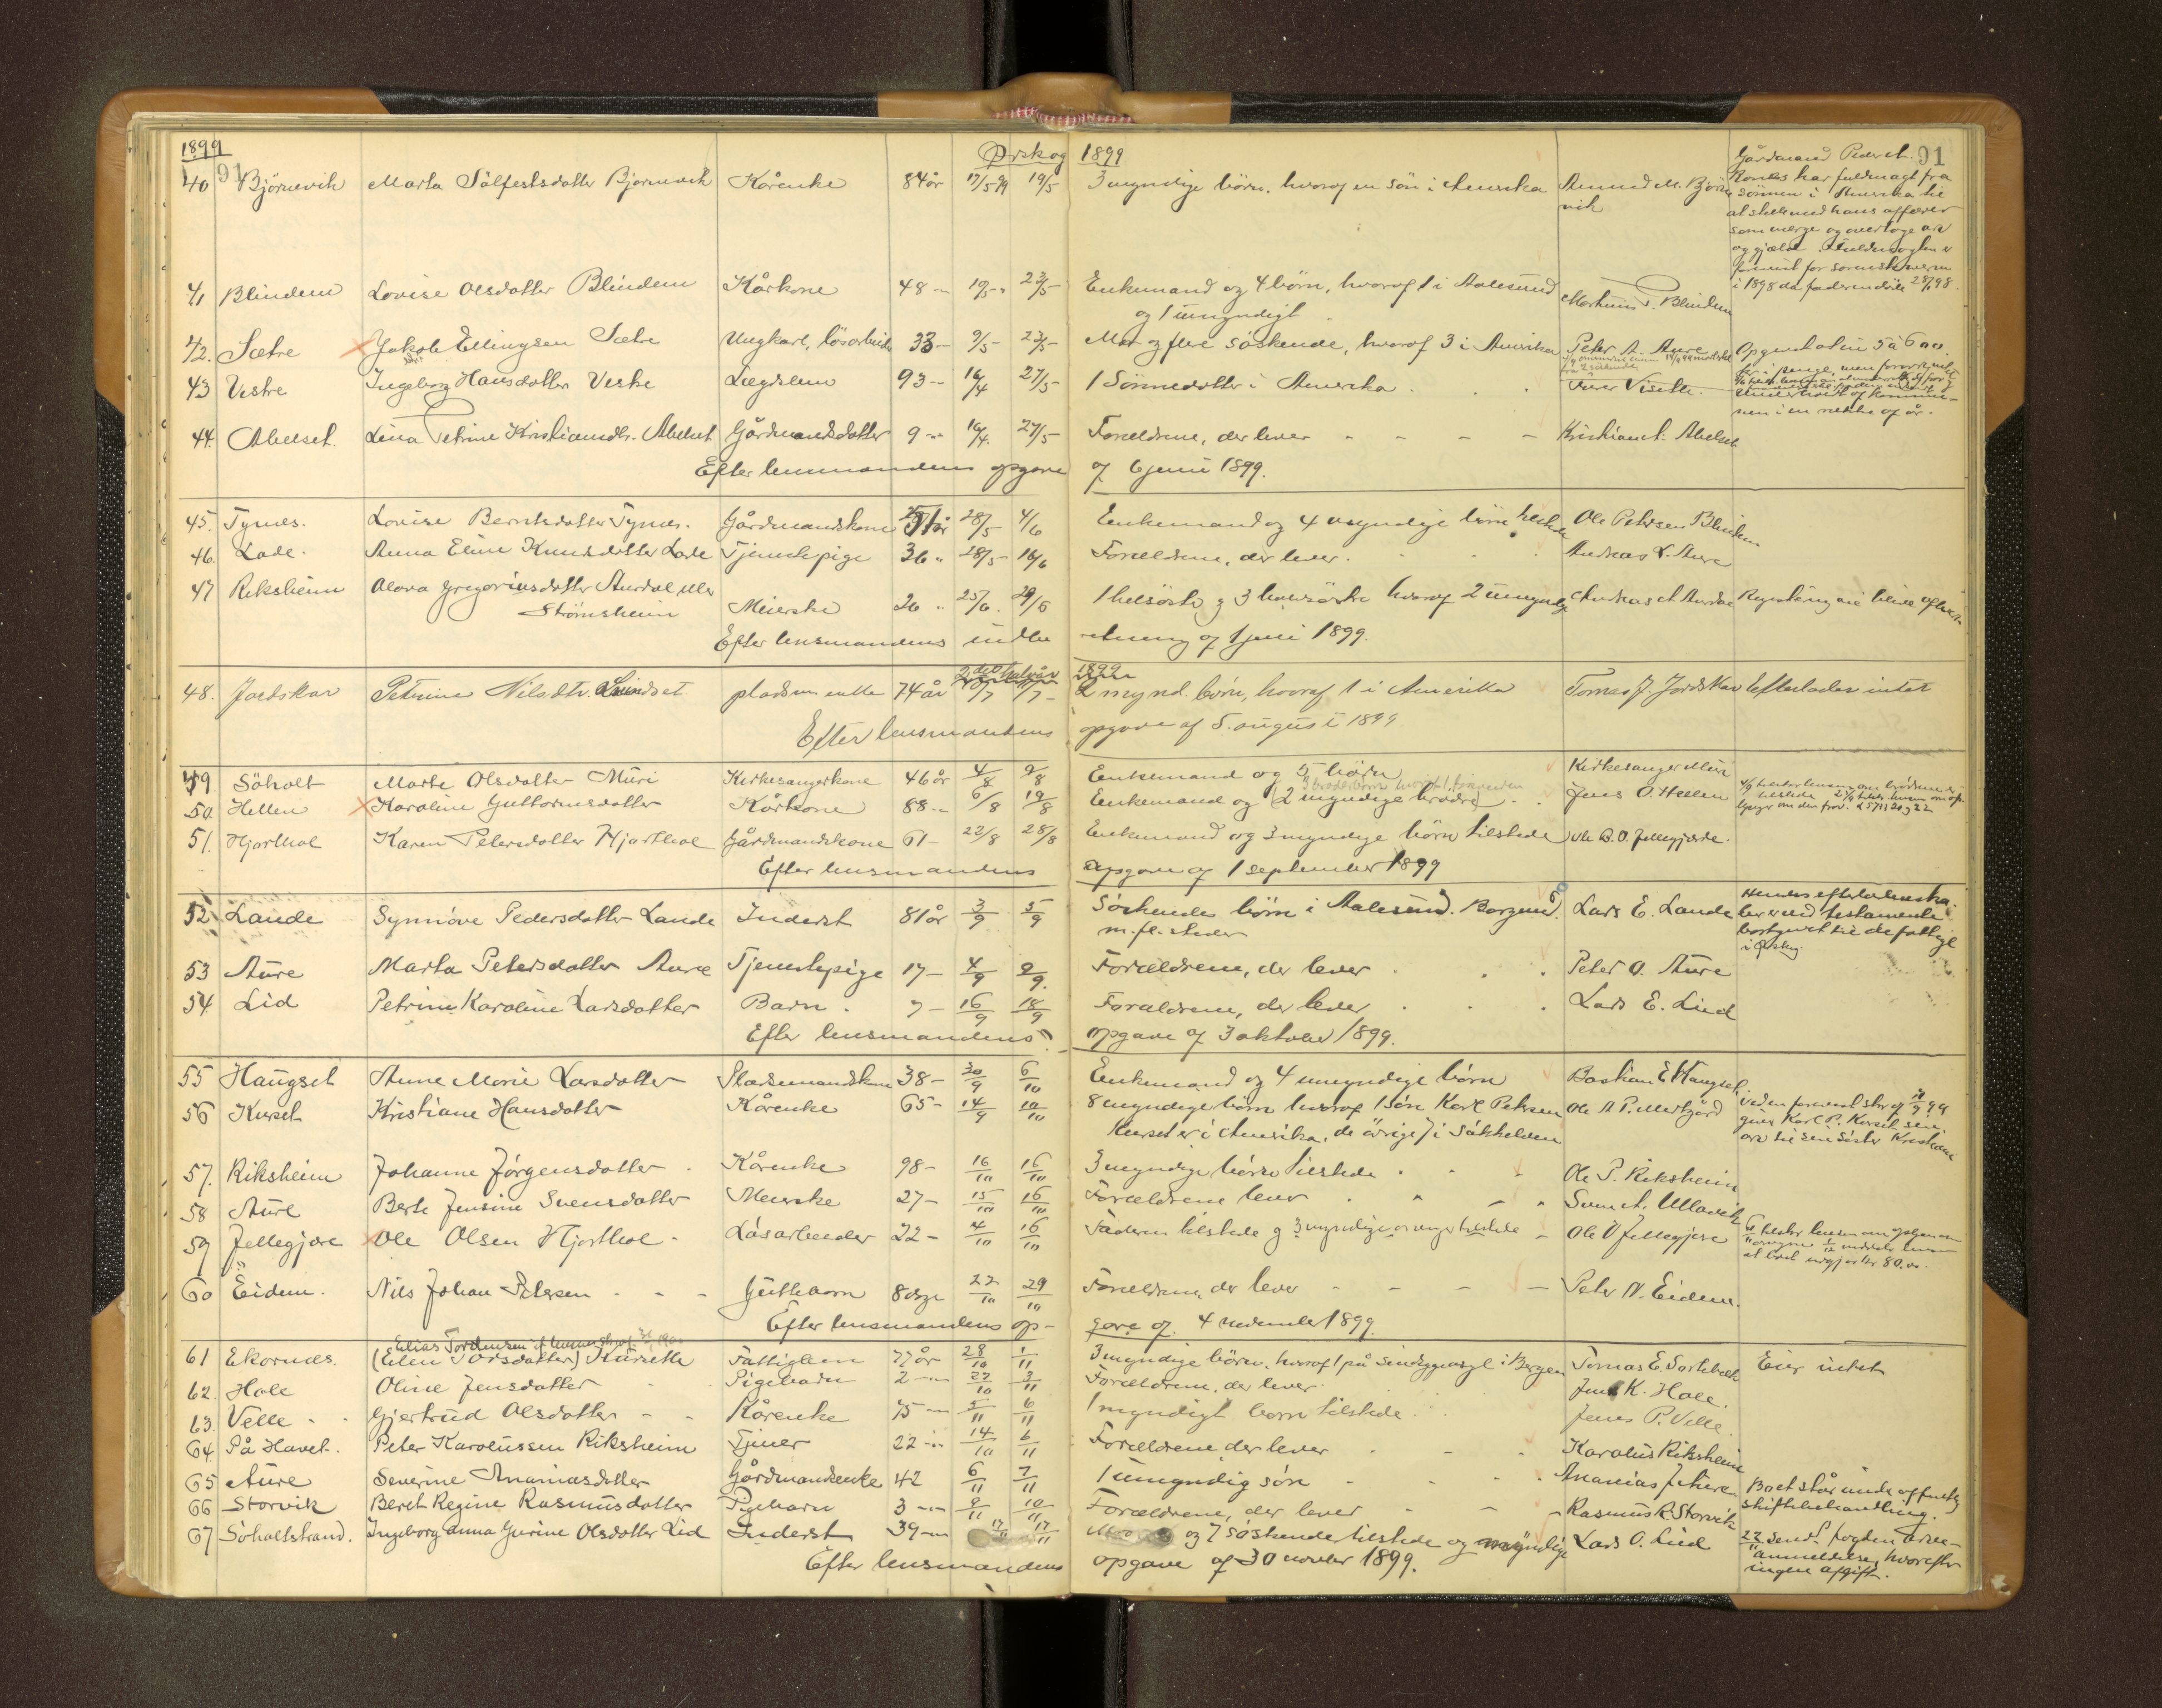 1899 Ørskog 1899
91 91
40 Bjørnevik Marta Sølfestsdatter Bjørnevik Kårenke 84 år 17/5 99 19/5 3 myndige børn, hvoraf en søn i Amerika Amund M. Bjørnevik
Gårdmand Peder A.
har fuldmagt fra
sønnen i Amerika til
at stelle med hans affærer
som verge og overtage arv
og gjæld. Fuldmagten er
forevist for sorenskriveren
i 1898 da faderen døde 28/ 98.
41 Blindem Lovise Olsdatter Blindem Kårkone 48 - 19/5 - 23/5 - Enkemand og 4 børn, hvoraf 1 i Aalesund Martinus P. Blindem
og 1 umyndigt
42. Sætre Jakob Ellingsen Sætre Ungkarl, løsarbeider 33 - 9/5 - 23/5 - Mor og flere søskende, hvoraf 3 i Amerika Peter A. Aure
43 Vestre Ingeborg Hansdatter Vestre Lægdslem 93 - 16/4 27/5 - 1 Sønnedatter i Amerika
nen i en række af år.
44. Abelset. Lina Petrine Kristiansdtr. Abelset Gårdmandsdatter 9 - 16/4. 27/5 - Forældrene, der lever - - - - Kristian A. Abelset
Efter lensmandens opgave af 6 juni 1899.
45. Tynes. Lovise Berntsdatter Tynes. Gårdmandskone år 28/5 4/6 Enkemand og 4 umyndige børn Ole Petersen Blindem
46. Lade. Anna Eline Knudsdatter Lade Tjenestepige 36 " 28/5 - 16/6 Forældrene, der lever. Andreas L. Aure
47 Riksheim Olava Gregoriusdatter Aurdal eller
Strømsheim Meierske 26 " 25/6. 29/6 1 helsøster og 3 halvsøstre hvoraf 2 umyndige Andreas A. Aurdal
Efter lensmandens indberetning af 1 juli 1899.
2det halvår 1899
48. Jordskar Petrine Nilsdtr. Lindset pladsm. enke 74 år /7 /7 - 2 mynd. børn, hvoraf 1 i Amerika Tomas J. Jordskar Efterlader intet
Efter lensmandens opgave af 5. august 1899
49 Søholt Marte Olsdatter Muri Kirkesangerkone 46 år 4/8 9/8 Enkemand og 5 børn Kirkesanger Muri
50. Hellen Karoline Guttormsdatter Kårkone 88 - 6/8 19/8 Enkemand og (2 myndige brødre) Jens O. Hellen
51. Hjorthol Karen Petersdatter Hjorthol Gårdmandskone 61 - 22/8 28/8 Enkemand og 3 myndige børn tilstede Ole B. O. Jellegjærde.
Efter lensmandens opgave af 1 september 1899
52. Lande Synnøve Pedersdatter Lande Inderst 81 år 3/9 5/9 Søskendes børn i Aalesund. Borgund. Lars E. Lande
m. fl. steder
Hendes efterladenska-
ber er ved testamente
bortgivet til de fattige
i Ørskog
53 Aure Marta Petersdatter Aure Tjenestepige 17 - 4/9 9/9. Forældrene, der lever . . . Peter O. Aure
54. Lid Petrine Karoline Larsdatter Barn . 7 - 16/9 18/9 Forældrene, der lever . . . Lars E. Lied
Efter lensmandens opgave af 3 oktober 1899.
55 Haugset Anne Marie Larsdatter Pladsemandskone 38 - 30/9 6/10 Enkemand og 4 umyndige børn Bastian E Haugset.
56 Kurset Kristiane Hansdatter Kårenke 65 - 14/9 10/10 8 myndige børn hvoraf 1 søn Karl Petersen Ole A P. Mertgård
Kurset er i Amerika, de øvrige 7 i Søkkelven
57. Riksheim Johanne Jørgensdatter - Kårenke 98 - 16/10 16/10 3 myndige børn tilstede Ole P. Riksheim
58 Aure Berte Jensine Svensdatter Meierske 27 - 15/10 16/10 Forældrene lever . " - " Sven A. Ullavik
59 Jellegjære Ole Olsen Hjorthol - Løsarbeider 22 - 4/10 16/10 Faderen tilstede og 3 myndige tilstede - Ole O Jellegjere
60 Eidem. Nils Johan Petersen - - - Guttebarn 8 dage 22/10 29/10 Forældrene, der lever - - - - Peter N. Eidem.
Efter lensmandens opgave af. 4 november 1899.
61 Ekornæs. (Elen Tordsdatter) Kursetli Fattiglem 77 år 28/10 1/11 3 myndige børn, hvoraf 1 på Sindsygeasyl i Bergen Tomas E. Sortebæk Eier intet
62. Hole Oline Jensdatter - Pigebarn 2 - 27/10 3/11 Forældrene, der lever. Jens K. Hole.
63. Velle - - Gjertrud Olsdatter - - Kårenke 75 - 5/11 6/11 1 myndigt barn tilstede Jens P. Velle
64. På Havet. Peter Karolussen Riksheim Tjener 22 - 14/10 6/11 Forældrene der lever - - - Karolus Riksheim
65 Aure Severine Ananiasdatter Gårdmandsenke 42 6/11 7/11 1 umyndig søn - - . Ananias Boet står under offentlig
skiftebehandling.
66 Storvik Beret Regine Rasmusdatter Pigebarn 3 - 9/11 10/11 Forældrene, der lever - - - Rasmus R. Storvik
67 Søholtstrand. Ingeborg Anna Gurine Olsdatter Lid Inderst 39 - 17/11 og 7 søskende tilstede og myndige Lars O. Lied
22/11 Sendt fogden arve-
anmeldelse, hvorefter
ingen afgift.
Efter lensmandens opgave af 30 novbr 1899.